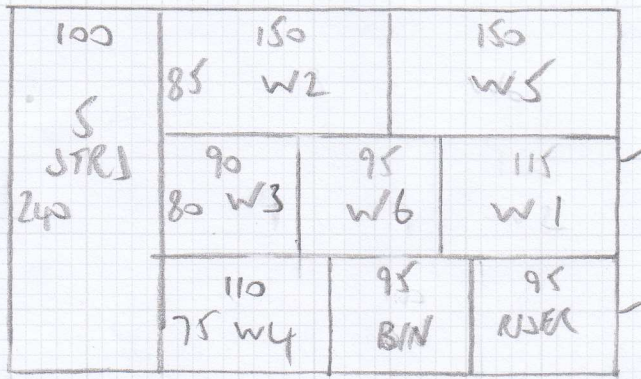 100
5
STRS
240
150
85 W2
150
W5
90
80 W3
95
W6
115
W1
110
75 W4
95
BIN
95
RISER